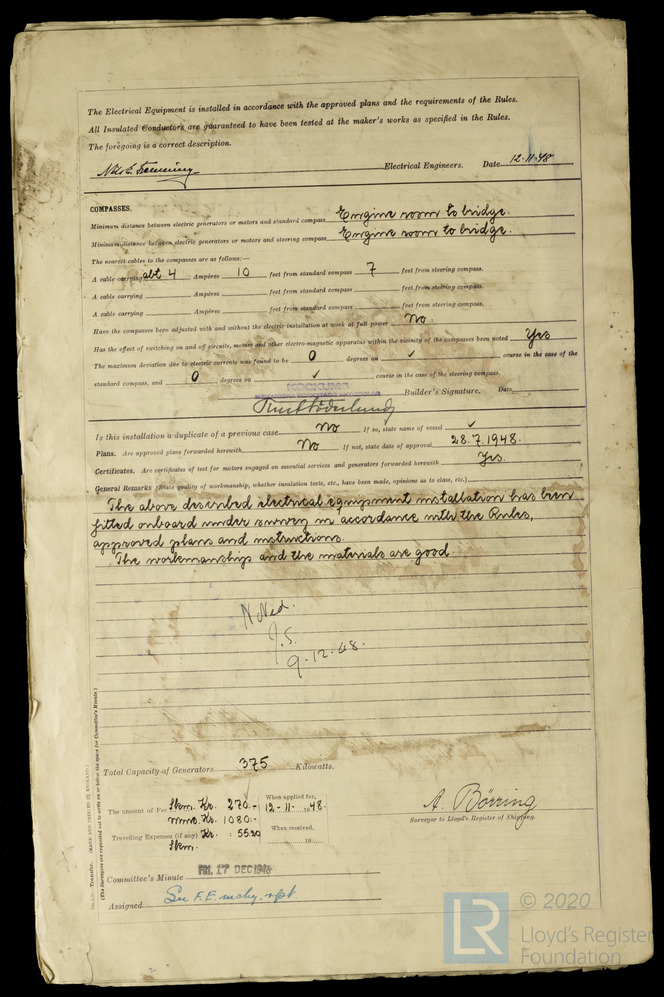 The Electrical Equipment is installed in accordance with the approved plans and the requirements of the Rules.
All Insulated Conductors are guaranteed to have been tested at the maker's works as specified in the Rules.
The foregoing is a correct description.
Electrical Engineers. Date 12-11-48
COMPASSES.
Minimum distance between electric generators or motors and standard compass Engine room to bridge.
Minimum distance between electric generators or motors and steering compass Engine room to bridge.
The nearest cables to the compasses are as follows:—
A cable carrying abt 4 Ampères 10 feet from standard compass 7 feet from steering compass.
A cable carrying Ampères feet from standard compass feet from steering compass.
A cable carrying Ampères feet from standard compass feet from steering compass.
Have the compasses been adjusted with and without the electric installation at work at full power No
Has the effect of switching on and off circuits, motors and other electro-magnetic apparatus within the vicinity of the compasses been noted Yes
The maximum deviation due to electric currents was found to be 0 degrees on ✓ course in the case of the
standard compass, and 0 degrees on ✓ course in the case of the steering compass.
KOCKUMS
Builder's Signature. Date
Is this installation a duplicate of a previous case No If so, state name of vessel ✓
Plans. Are approved plans forwarded herewith No If not, state date of approval 28.7.1948.
Certificates. Are certificates of test for motors engaged on essential services and generators forwarded herewith Yes.
General Remarks (State quality of workmanship, whether insulation tests, etc., have been made, opinions as to class, etc.)
The above described electrical equipment installation has been
fitted onboard under survey in accordance with the Rules,
approved plans and instructions.
The workmanship and the materials are good.
Noted.
J.S.
9-12-48.
Total Capacity of Generators 375 Kilowatts.
The amount of Fee Skm. Kr. 270.- When applied for, 12-11-1948.
Kr. 1080.-
Travelling Expenses (if any) Kr. : 55.20 When received, 19
Skm.
A. Börring
Surveyor to Lloyd's Register of Shipping.
Committee's Minute FRI. 17 DEC 1948
Assigned See F.E. mchy. rpt.
Transfer. (MADE AND PRINTED IN ENGLAND.)
(The Surveyors are requested not to write on or below the space for Committee's Minute.)
LR © 2020
Lloyd's Register
Foundation